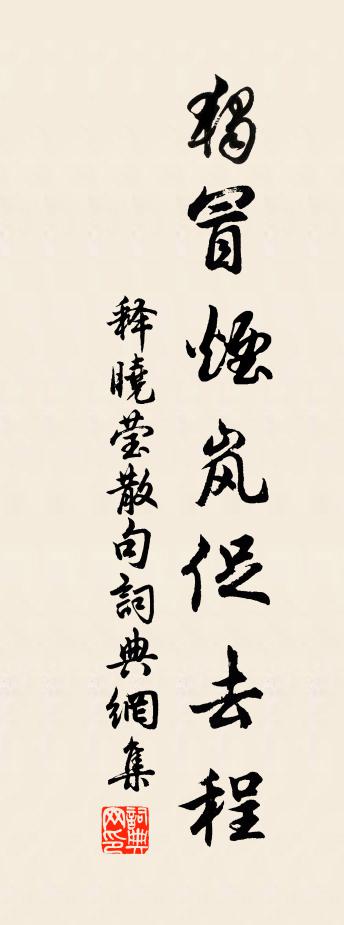 獨冒煙岚促去程
释曉莹散句詞典網集
詞典网印